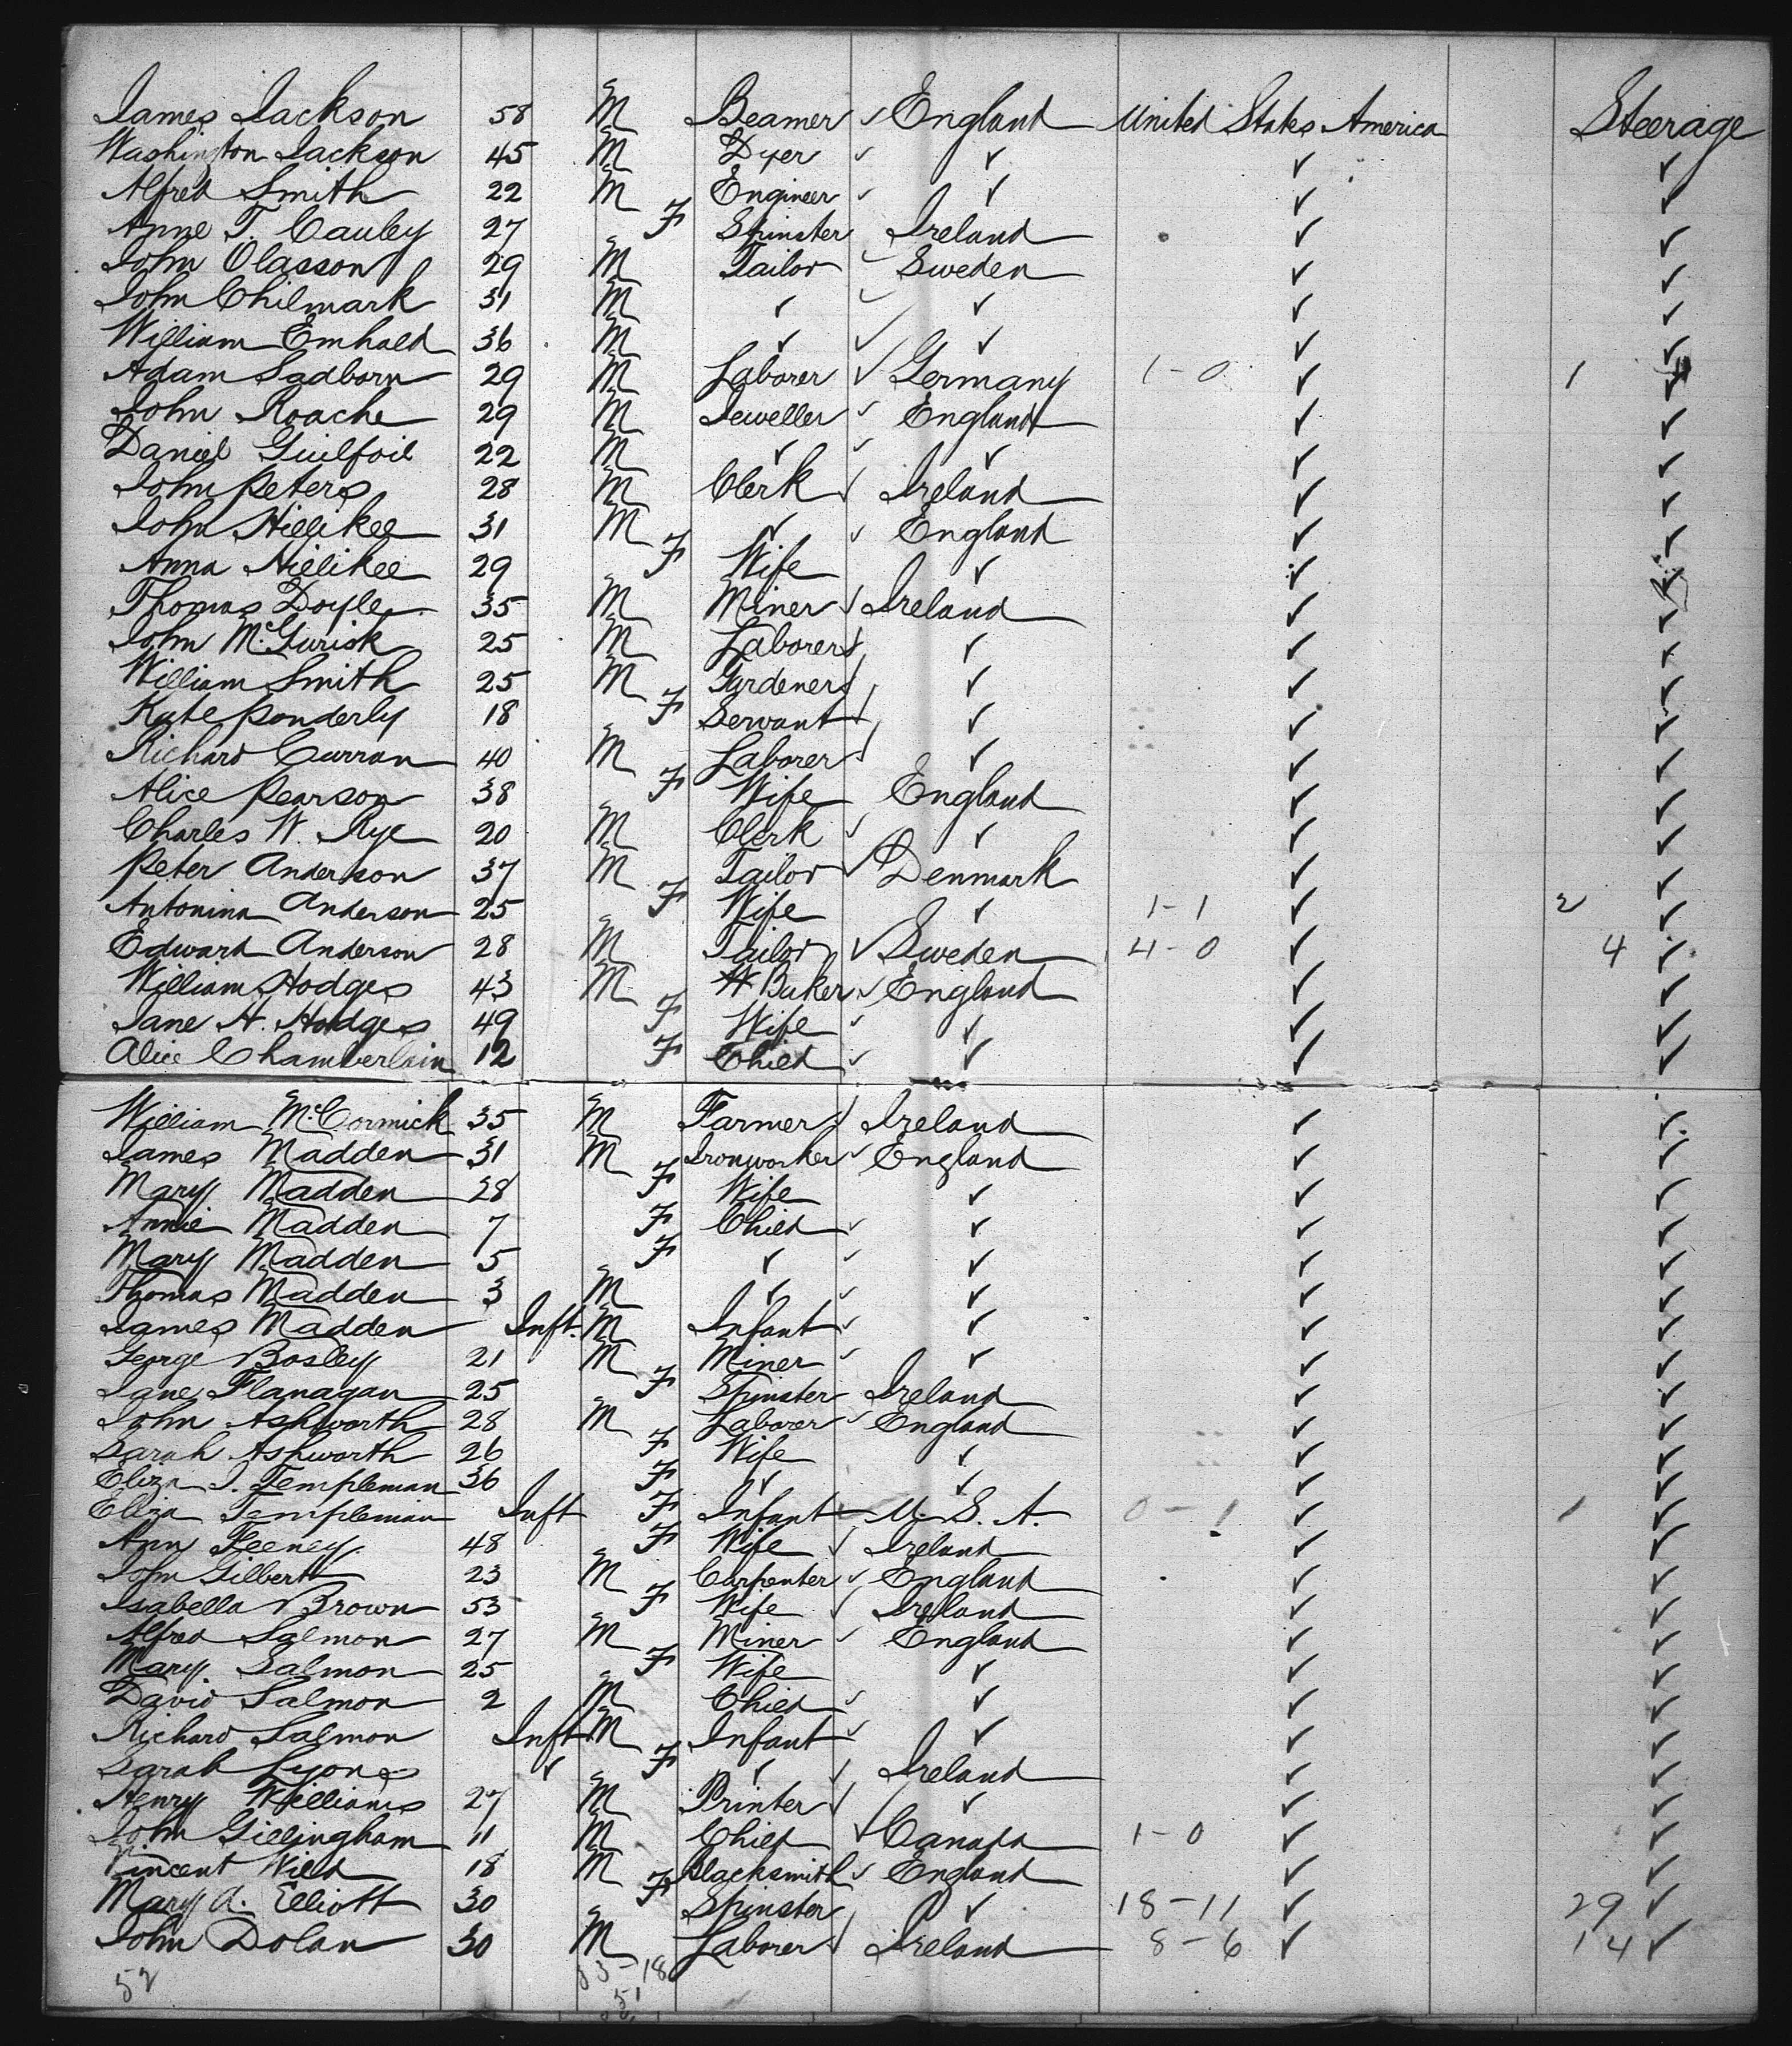 James Jackson 58 M Beamer ✓ England United States America Steerage
Washington Jackson 45 M Dyer ✓ ✓ ✓ ✓
Alfred Smith 22 M Engineer ✓ ✓ ✓ ✓
Anne T. Cauley 27 F Spinster Ireland ✓ ✓
John Olasson 29 M Tailor ✓ Sweden ✓ ✓
John Chilmark 31 M ✓ ✓ ✓ ✓ ✓
William Emhald 36 M ✓ ✓ ✓ ✓ ✓
Adam Sadborn 29 M Laborer ✓ Germany 1-0 ✓ 1 ✓
John Roache 29 M Jeweller ✓ England ✓ ✓
Daniel Guilfoil 22 M ✓ ✓ ✓ ✓ ✓
John Peters 28 M Clerk ✓ Ireland ✓ ✓
John Hillikee 31 M ✓ ✓ England ✓ ✓
Anna Hillikee 29 F Wife ✓ ✓ ✓
Thomas Doyle 35 M Miner ✓ Ireland ✓ ✓
John 25 M Laborer ✓ ✓ ✓ ✓
William Smith 25 M Gardener ✓ ✓ ✓ ✓
Kate Ponderly 18 F Servant ✓ ✓ ✓ ✓
Richard Curran 40 M Laborer ✓ ✓ ✓ ✓
Alice Pearson 38 F Wife England ✓ ✓
Charles W. Rye 20 M Clerk ✓ ✓ ✓ ✓
Peter Anderson 37 M Tailor ✓ Denmark ✓ ✓
Antonina Anderson 25 F Wife ✓ 1-1 ✓ 2 ✓
Edward Anderson 28 M Tailor ✓ Sweden 4-0 ✓ 4 ✓
William Hodges 43 M Baker ✓ England ✓ ✓
Jane H. Hodges 49 F Wife ✓ ✓ ✓ ✓
Alice Chamberlain 12 F Child ✓ ✓ ✓ ✓
William McCormick 35 M Farmer ✓ Ireland ✓ ✓
James Madden 31 M Ironworker ✓ England ✓ ✓
Mary Madden 28 F Wife ✓ ✓ ✓
Annie Madden 7 F Child ✓ ✓ ✓ ✓
Mary Madden 5 F ✓ ✓ ✓ ✓ ✓
Thomas Madden 3 M ✓ ✓ ✓ ✓ ✓
James Madden Inft. M Infant ✓ ✓ ✓ ✓
George Bosley 21 M Miner ✓ ✓ ✓ ✓
Jane Flanagan 25 F Spinster Ireland ✓ ✓
John Ashworth 28 M Laborer ✓ England ✓ ✓
Sarah Ashworth 26 F Wife ✓ ✓ ✓
Eliza J. Templeman 36 F ✓ ✓ ✓ ✓
Eliza Templeman Inft F Infant U. S. A. 0-1 ✓ 1 ✓
Ann Feeney 48 F Wife ✓ Ireland ✓ ✓
John Gilbert 23 M Carpenter ✓ England ✓ ✓
Isabella Brown 53 F Wife ✓ Ireland ✓ ✓
Alfred Salmon 27 M Miner ✓ England ✓ ✓
Mary Salmon 25 F Wife ✓ ✓ ✓
David Salmon 2 M Child ✓ ✓ ✓ ✓
Richard Salmon Inft M Infant ✓ ✓ ✓ ✓
Sarah Lyons ✓ F ✓ ✓ Ireland ✓ ✓
Henry Williams 27 M Printer ✓ ✓ ✓ ✓
John Gillingham 11 M Child ✓ Canada 1-0 ✓ ✓
Vincent Wild 18 M Blacksmith ✓ England ✓ ✓
Mary A. Elliott 30 F Spinster ✓ 18-11 ✓ 29 ✓
John Dolan 30 M Laborer ✓ Ireland 8-6 ✓ 14 ✓
52 33-18
51